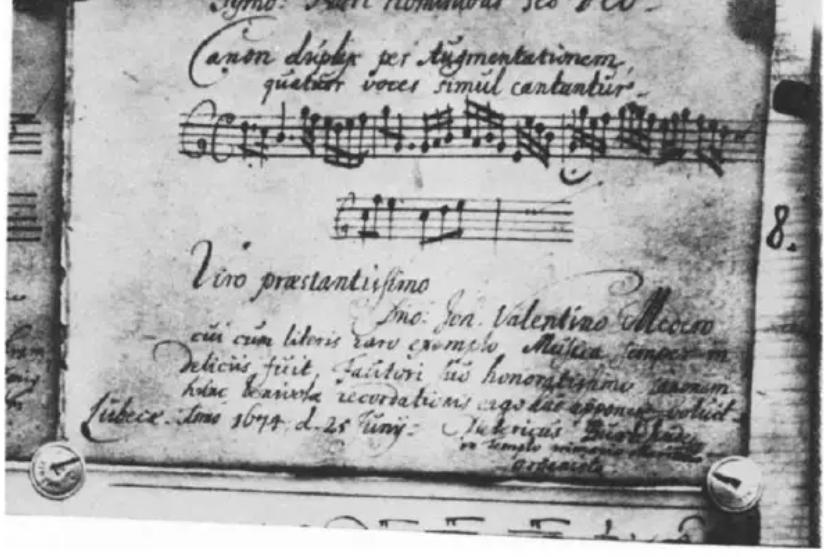 Symb: Nominibus
Canon duplex per Augmentationem,
quatuor voces simul cantantur.
8.
Viro præstantissimo
Dno: Joh. Valentino Medero
cui cum literis raro exemplo Musica semper in
deliciis fuit, Fautori suo honoratissimo canonem
hunc benivolæ recordationis ergo apponere voluit
Lübecæ. Anno 1674. d. 25 Junij. Dietericus Buxtehude
in templo primario
organista